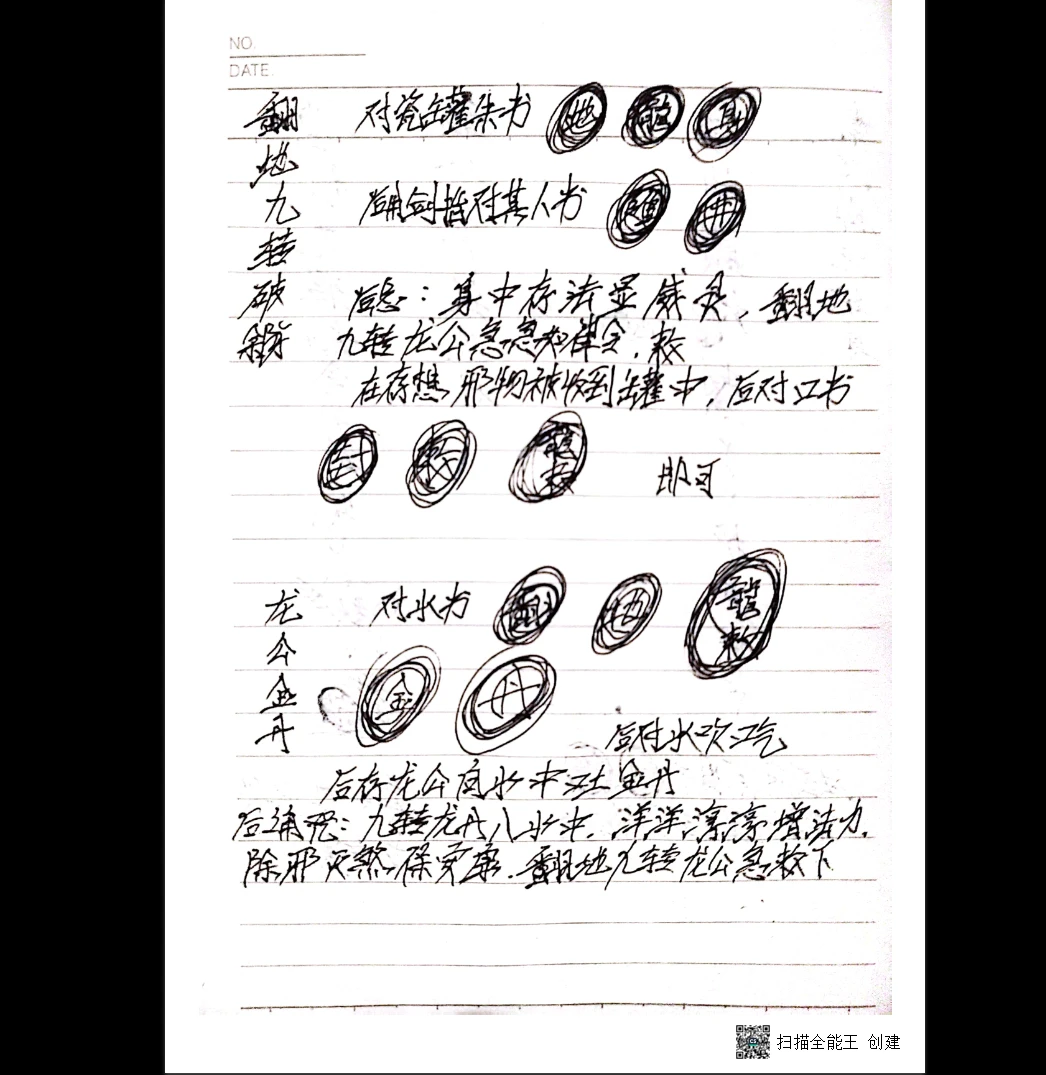 NO.
DATE.
翻地九转破
对瓷缶罐朱书 地
后用剑指对其人书
后念：身中存法显威灵，翻地
九转龙公急急如律令，敕
在存想邪物被收到罐中，后对口书
封 敕 龍敕 即可
龙公金丹
对水书 翻 地 龍敕
金 丹
后对水吹一口气
后存龙公向水中吐金丹
后诵咒：九转龙丹入水中，洋洋淳淳增法力，
除邪灭煞保安康，翻地九转龙公急敕下
扫描全能王 创建